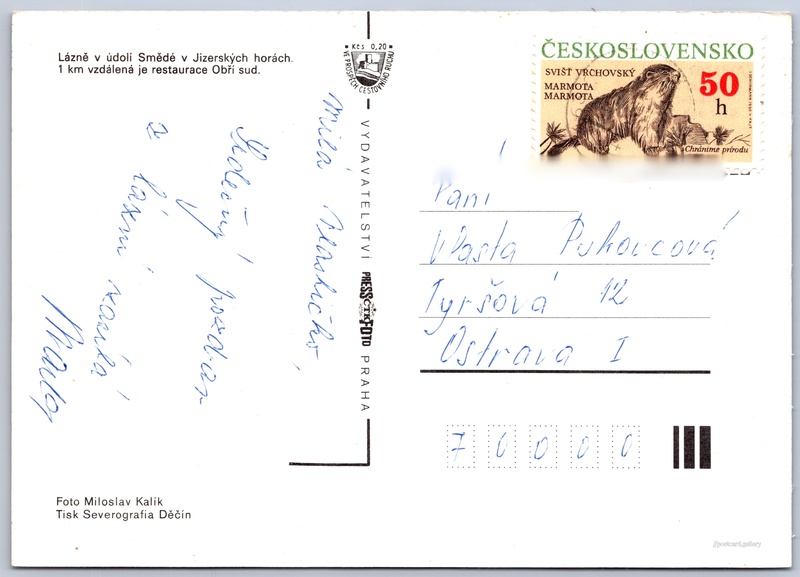 Lázně v údolí Smědé v Jizerských horách.
1 km vzdálená je restaurace Obří sud.
Kčs 0,20
VE PROSPĚCH CESTOVNÍHO RUCHU
ČESKOSLOVENSKO
SVIŠŤ VRCHOVSKÝ
MARMOTA
MARMOTA
50
h
Chráníme přírodu
Milá Vlastičko,
Srdečný pozdrav
z lázní zasílá
VYDAVATELSTVÍ PRESSFOTO PRAHA
ČTK
Paní
Vlasta Puhovcová
Tyršová 12
Ostrava I
70000
Foto Miloslav Kalík
Tisk Severografia Děčín
//postcard.gallery